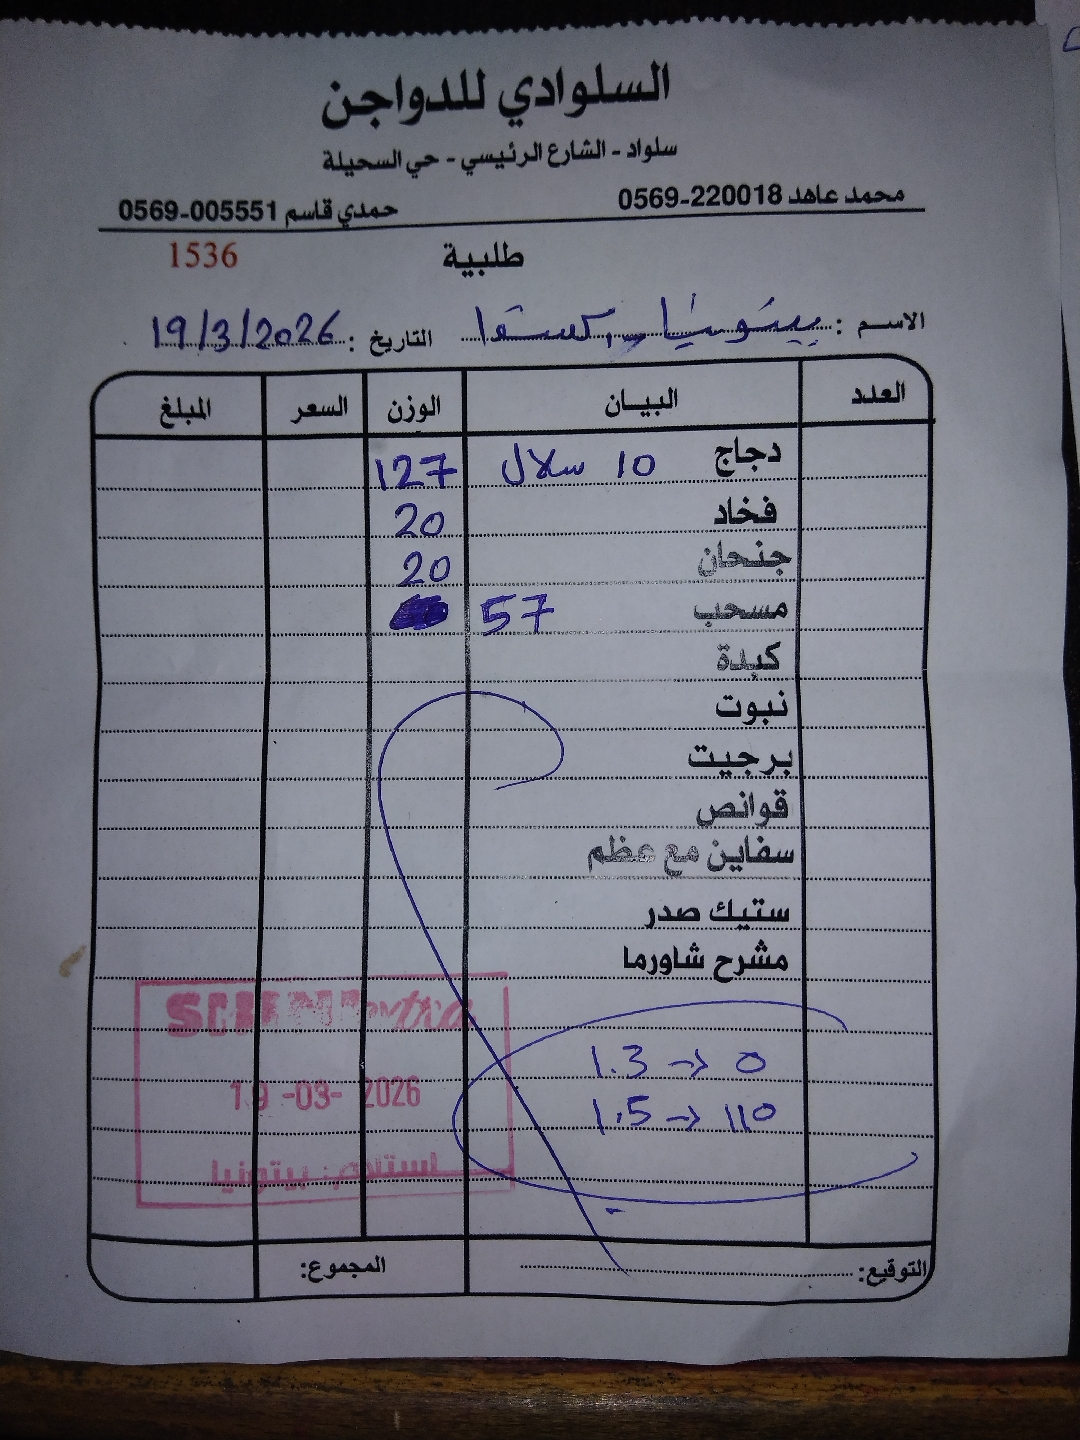 السلوادي للدواجن
سلواد - الشارع الرئيسي - حي السحيلة
محمد عاهد 0569-220018 حمدي قاسم 0569-005551
طلبية 1536
الاسم : بيتونيا التاريخ : 19/3/2026
العدد البيان الوزن السعر المبلغ
دجاج 10 سلال 127
فخاد 20
جنحان 20
مسحب 57
كبدة
نبوت
برجيت
قوانص
سفاين مع عظم
ستيك صدر
مشرح شاورما
extra
1.3 -> 0
19-03-2026
1.5 -> 110
استلام: بيتونيا
التوقيع: المجموع: